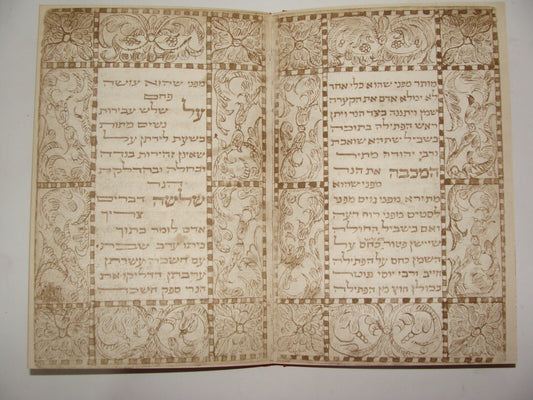 מותר מפני שהוא כלי אחד
לא ימלא אדם את הקערה
שמן ויתננה בצד הנר ויתן
ראש הפתילה בתוכה
בשביל שתהא שואבת
ורבי יהודה מתיר
המכבה את הנר
מפני שהוא
מתירא מפני גוים מפני
לסטים מפני רוח רעה
ואם בשביל החולה
שיישן פטור כחס על
השמן כחס על הפתילה
חייב ורבי יוסי פוטר
בכולן חוץ מן הפתילה
מפני שהוא עושה
פחם
על שלש עבירות
נשים מתות
בשעת לידתן על
שאינן זהירות בנדה
ובחלה ובהדלקת
הנר
שלשה דברים
צריך
אדם לומר בתוך
ביתו ערב שבת
עם חשכה עשרתן
ערבתן הדליקו את
הנר ספק חשכה